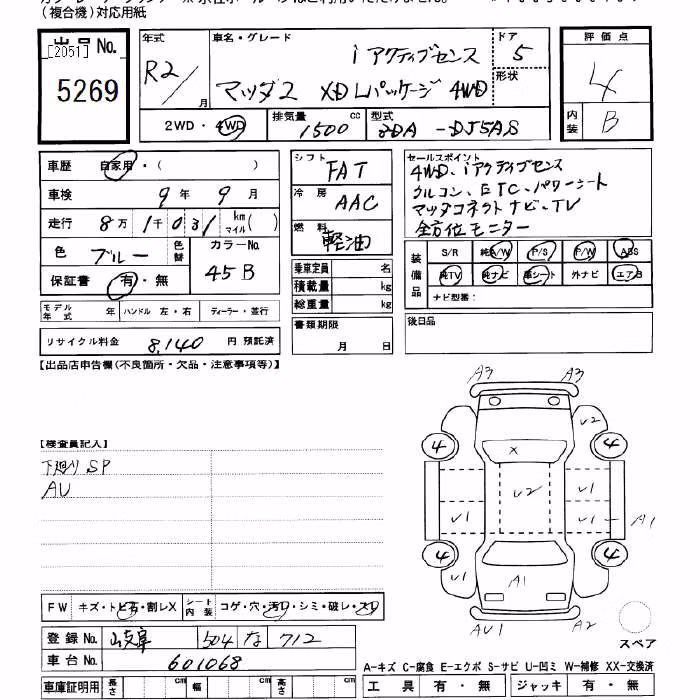 (複合機)対応用紙
出品No.
[2051]
5269
年式
R2/
月
車名・グレード
i アクティブセンス
マツダ2 XD Lパッケージ 4WD
ドア
5
形状
2WD・4WD
排気量
1500
cc
型式
3DA -DJ5AS
評価点
4
内装
B
車歴
自家用・( )
車検
9年 9月
走行
8万1千031 km マイル( )
色
ブルー
色替
カラーNo.
45B
保証書
有・無
モデル年式
年
ハンドル 左・右
ディーラー・並行
リサイクル料金
8,140
円 預託済
シフト
FAT
冷房
AAC
燃料
軽油
乗車定員 名
積載量 kg
総重量 kg
書類期限
月 日
セールスポイント
4WD、iアクティブセンス
クルコン、ETC、パワーシート
マツダコネクトナビ、TV
全方位モニター
装備品
S/R 純A/W P/S P/W ABS
純TV 純ナビ 革シート 外ナビ エアB
ナビ型番:
後日品
【出品店申告欄(不良箇所・欠品・注意事項等)】
【検査員記入】
下廻り SP
AU
A3 A3
U2
4 4
X
U2
U1 U1 U1 U1
A1
4 4
U1 U1
A1
AU1 A2
スペア
FW
キズ・トビ石・割レX
シート内装
コゲ・穴・汚レ・シミ・破レ・スレ
登録No.
岐阜 504 な 712
車台No.
601068
車庫証明用
長さ cm
幅 cm
高さ cm
A-キズ C-腐食 E-エクボ S-サビ U-凹ミ W-補修 XX-交換済
工具 有・無
ジャッキ 有・無